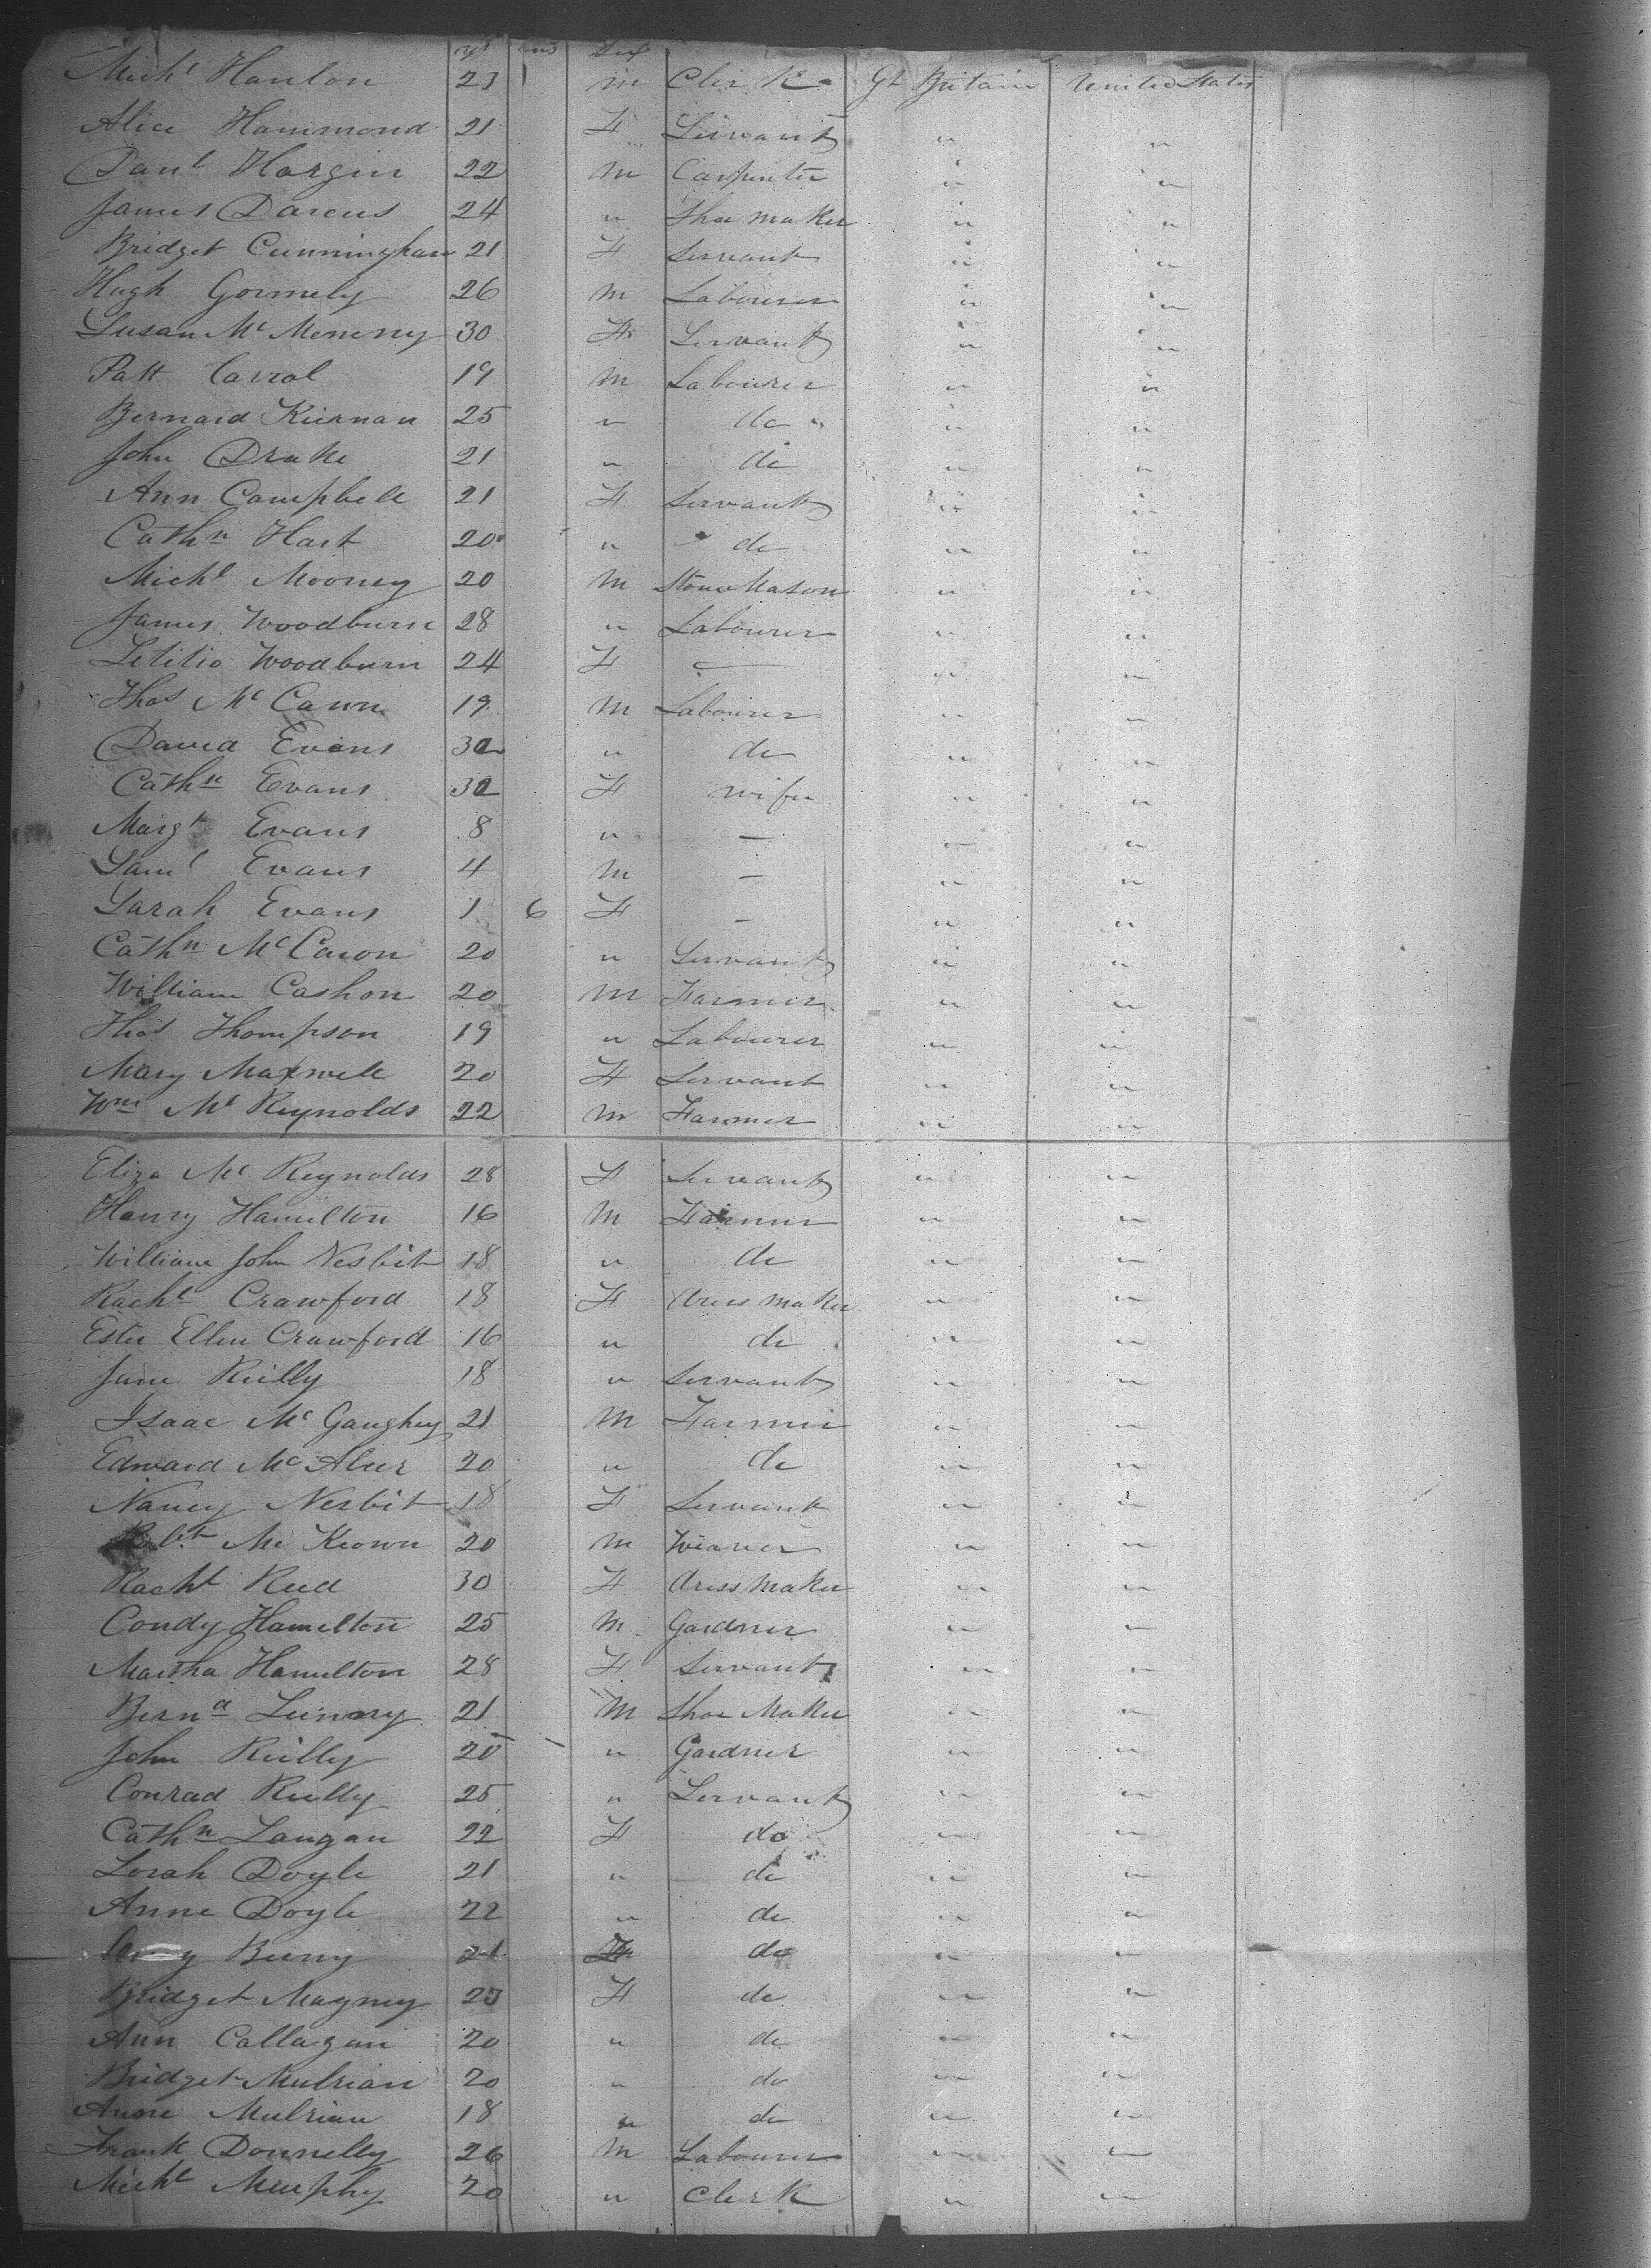 yr ms Sex
Michl Hanlon 23 M Clerk Gt Britain United States
Alice Hammond 21 F Servant " "
Danl Hargin 22 M Carpenter " "
James Darcus 24 " Shoe maker " "
Bridget Cunningham 21 F Servant " "
Hugh Gormely 26 M Labourer " "
Susan Mc Memeny 30 F Servant " "
Patt Carrol 19 M Labourer " "
Bernard Kiernan 25 " do " "
John Drake 21 " do " "
Ann Campbell 21 F Servant " "
Cathn Hart 20 " do " "
Michl Mooney 20 M Stone Mason " "
James Woodburn 28 " Labourer " "
Letitia Woodburn 24 F — " "
Thos Mc Cawn 19 M Labourer " "
David Evans " do " "
Cathn Evans F wife " "
Margt Evans 8 " — " "
Saml Evans 4 M — " "
Sarah Evans 1 6 F — " "
Cathn Mc Caron 20 " Servant " "
William Cashon 20 M Farmer " "
Thos Thompson 19 " Labourer " "
Mary Maxwell 20 F Servant " "
Wm Mc Reynolds 22 M Farmer " "
Eliza Mc Reynolds 28 F Servant " "
Henry Hamilton 16 M Farmer " "
William John Nesbit 18 " do " "
Rachl Crawford 18 F dress maker " "
Ester Ellen Crawford 16 " do " "
Jane Reilly 18 " Servant " "
Isaac Mc Gaughey 21 M Farmer " "
Edward Mc Aleer 20 " do " "
Nancy Nesbit 18 F Servant " "
Robt Mc Keown 20 M Weaver " "
Rachl Reed 30 F dress maker " "
Condy Hamelton 25 M Gardner " "
Martha Hamilton 28 F Servant " "
Bernd Lunny 21 M Shoe Maker " "
John Reilly 20 " Gardner " "
Conrad Reilly 25 " Servant " "
Cathn Langan 22 F do " "
Sorah Doyle 21 " do " "
Anne Doyle 22 " do " "
Beiny 21 F do " "
Bridget Magney 23 F do " "
Ann Callagan 20 " do " "
Bridget Mulrian 20 " do " "
Anne Mulrian 18 " do " "
Frank Donnelly 26 M Labourer " "
Michl Murphy 20 " Clerk " "